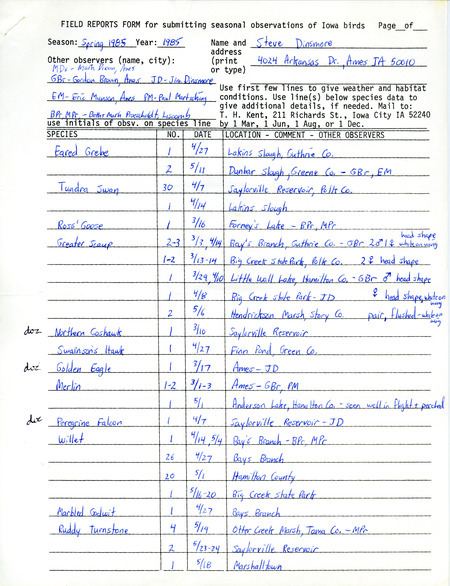 FIELD REPORTS FORM for submitting seasonal observations of Iowa birds Page__of__
Season: Spring 1985 Year: 1985 Name and Steve Dinsmore
address
Other observers (name, city): (print 4024 Arkansas Dr. Ames IA 50010
MDi - Mark Dixon, Ames or type)
GBr - Gordon Brown, Ames JD - Jim Dinsmore
Use first few lines to give weather and habitat
EM - Eric Munson, Ames PM - Paul Martsching conditions. Use line(s) below species data to
give additional details, if needed. Mail to
BPr, MPr - Beth + Mark Proescholdt, Liscomb T. H. Kent, 211 Richards St., Iowa City IA 52240
use initials of obsv. on species line by 1 Mar, 1 Jun, 1 Aug, or 1 Dec.
SPECIES NO. DATE LOCATION - COMMENT - OTHER OBSERVERS
Eared Grebe 1 4/27 Lakins Slough, Guthrie Co.
2 5/11 Dunbar Slough, Greene Co. - GBr, EM
Tundra Swan 30 4/7 Saylorville Reservoir, Polk Co.
1 4/14 Lakins Slough
Ross' Goose 1 3/16 Forney's Lake - BPr, MPr
head shape
Greater Scaup 2-3 3/3, 4/14 Bay's Branch, Guthrie Co. - GBr 2♂ 1♀ white on wing
1-2 3/13-14 Big Creek State Park, Polk Co. 2♀ head shape
1 3/29, 4/10 Little Wall Lake, Hamilton Co. - GBr ♂ head shape
1 4/8 Big Creek State Park - JD ♀ head shape, white on wing
2 5/6 Hendrickson Marsh, Story Co. pair, flushed - white on wing
doc Northern Goshawk 1 3/10 Saylorville Reservoir
Swainson's Hawk 1 4/27 Finn Pond, Green Co.
doc Golden Eagle 1 3/17 Ames - JD
Merlin 1-2 3/1-3 Ames - GBr, PM
1 5/1 Anderson Lake, Hamilton Co. - seen well in flight + perched
doc Peregrine Falcon 1 4/7 Saylorville Reservoir - JD
Willet 1 4/14, 5/4 Bay's Branch - BPr, MPr
26 4/27 Bays Branch
20 5/1 Hamilton County
1 5/16-20 Big Creek State Park
Marbled Godwit 1 4/27 Bays Branch
Ruddy Turnstone 4 5/19 Otter Creek Marsh, Tama Co. - MPr
2 5/23-24 Saylorville Reservoir
1 5/18 Marshalltown